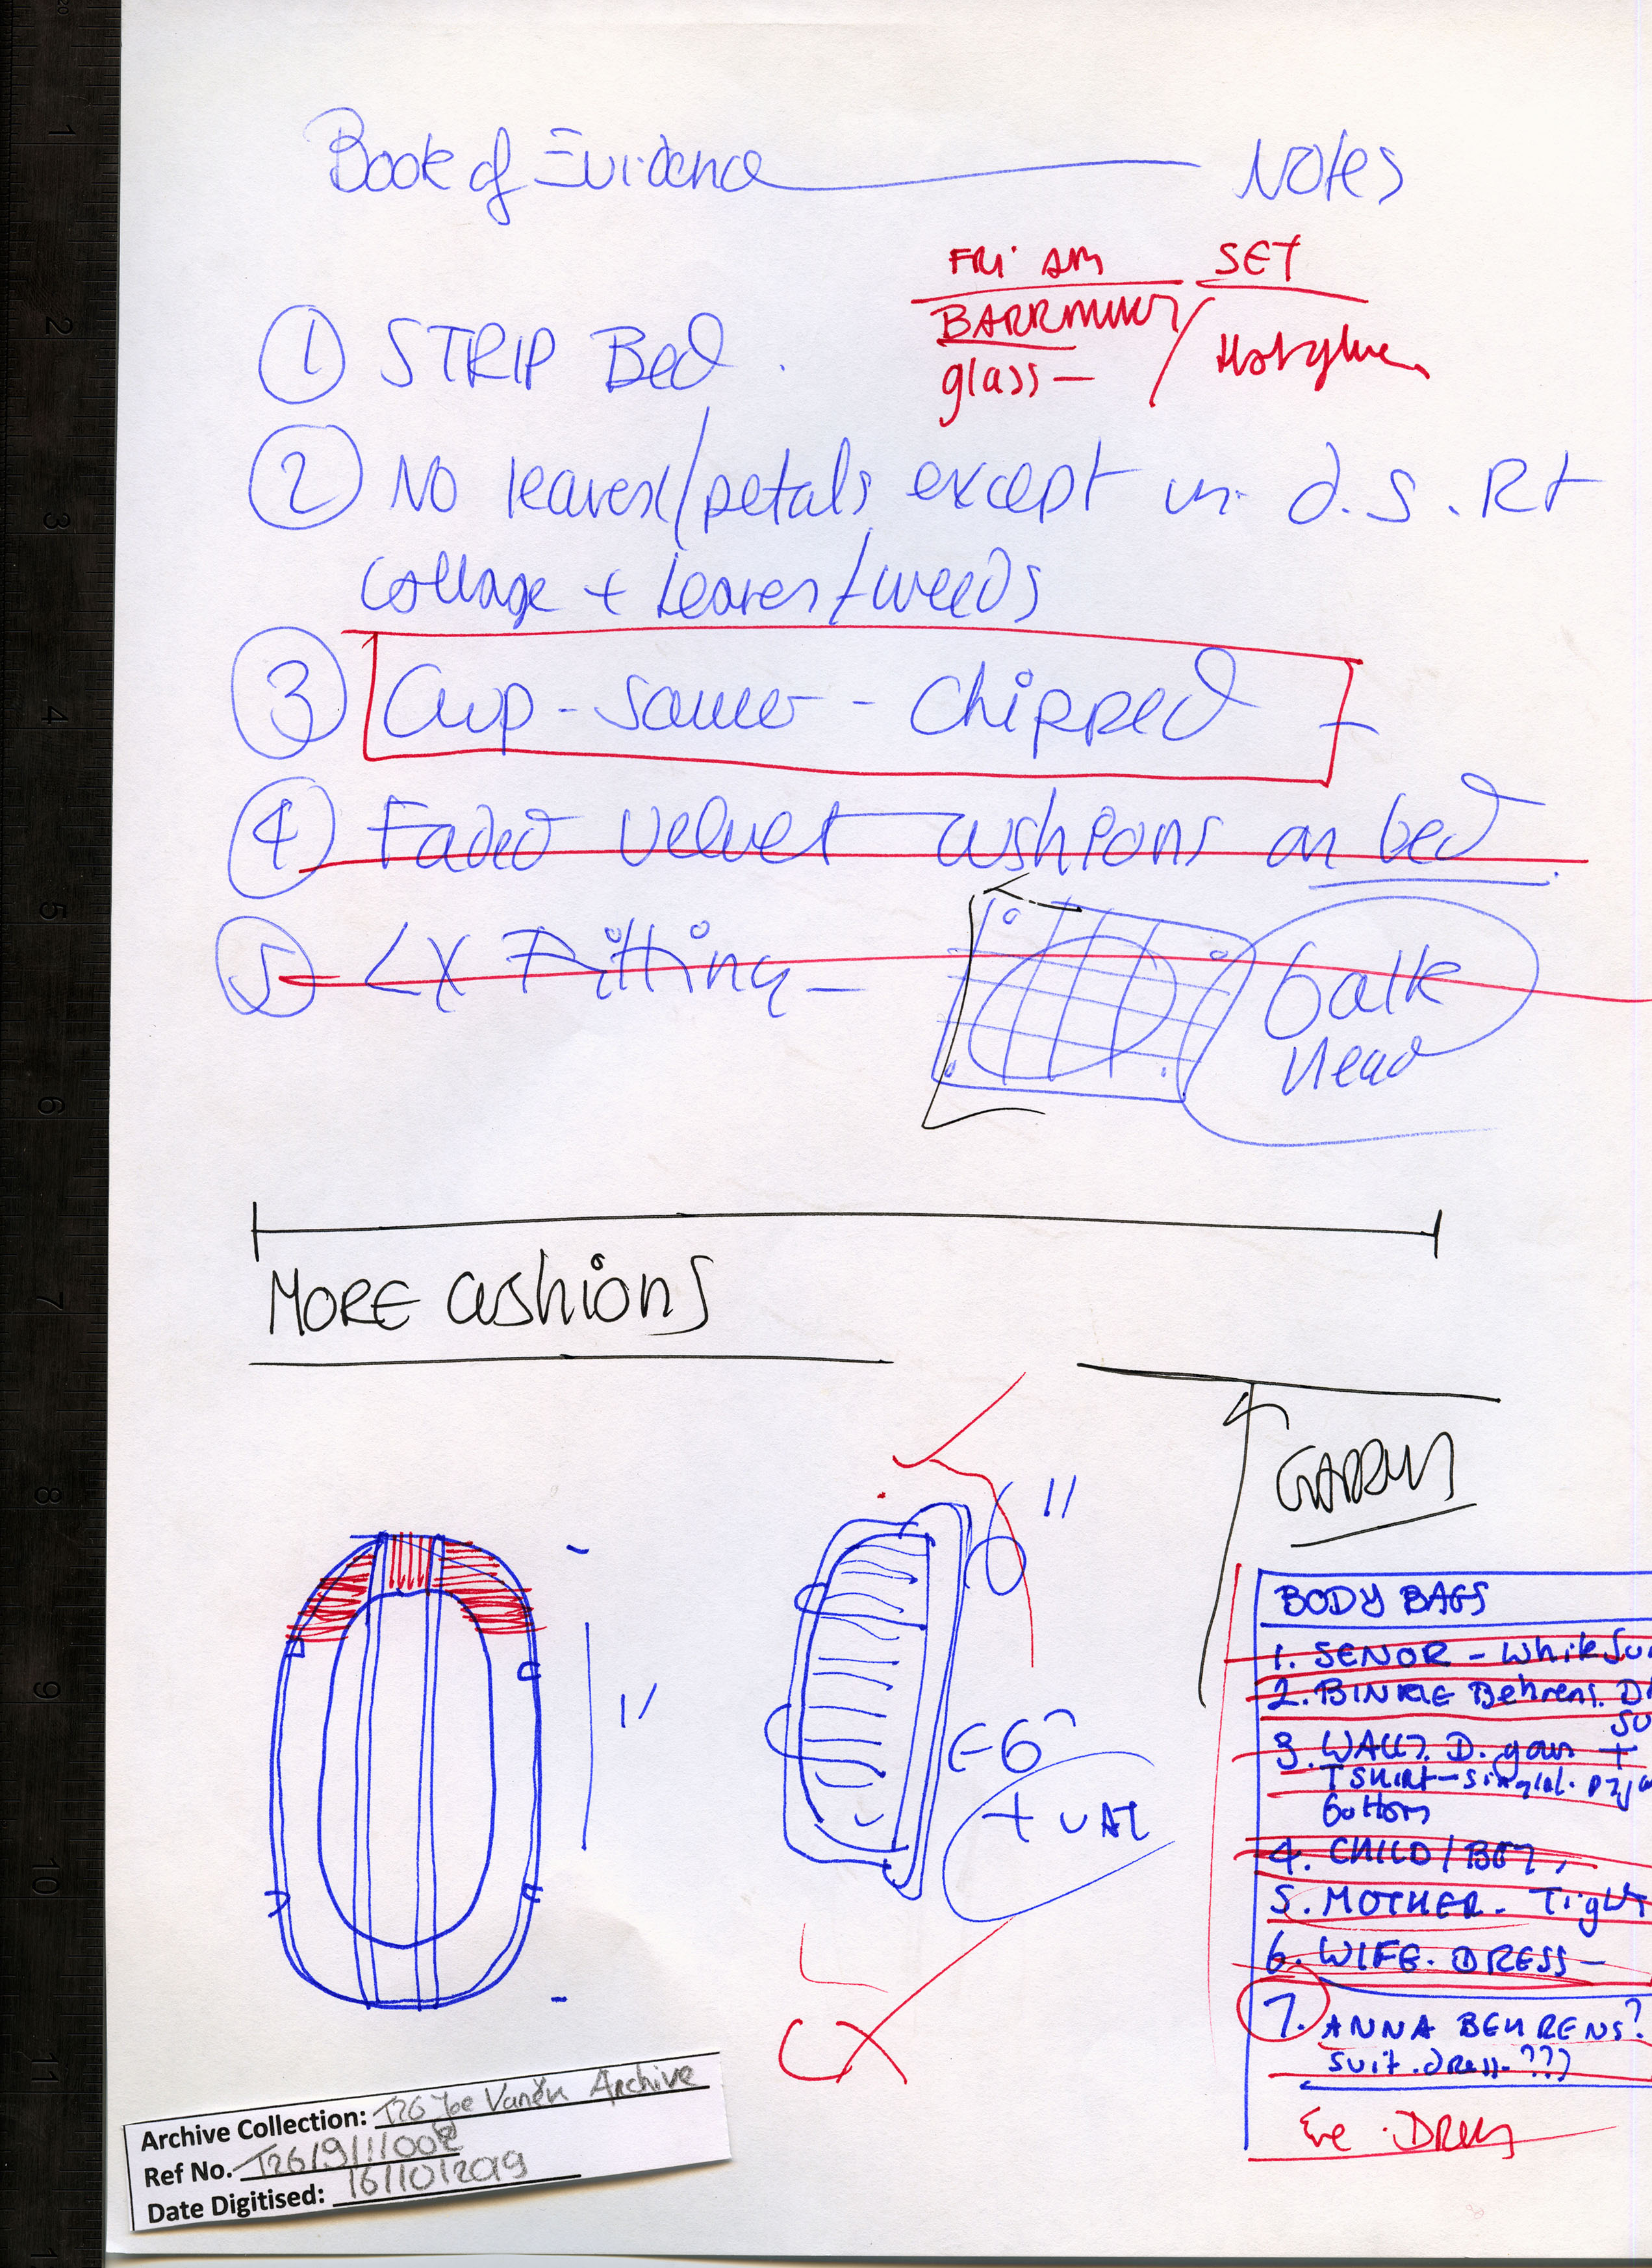 Book of Evidence — Notes
FRI AM SET
glass — / Hotglue
1 STRIP Bed.
2 NO leaves/petals except in d.S. Rt
collage + leaves/weeds
3 Cup - saucer - chipped -
4 Faded velvet cushions on bed.
5 LX Fitting -
balk
head
MORE cushions
GARDEN
1"
6"
+ VAT
BODY BAGS
1. SENOR - White Su
2. BINKIE Behrens. D
SU
3. WALLY. D. gown +
T SHIRT - singlet. pyja
bottom
4. CHILD / BOY,
5. MOTHER - Tight
6. WIFE. DRESS -
7. ANNA BEHRENS?
suit. dress. ???
Eve. DRESS
Archive Collection: T26 Joe Vaněk Archive
Ref No. T26/9/1/002
Date Digitised: 16/10/2019